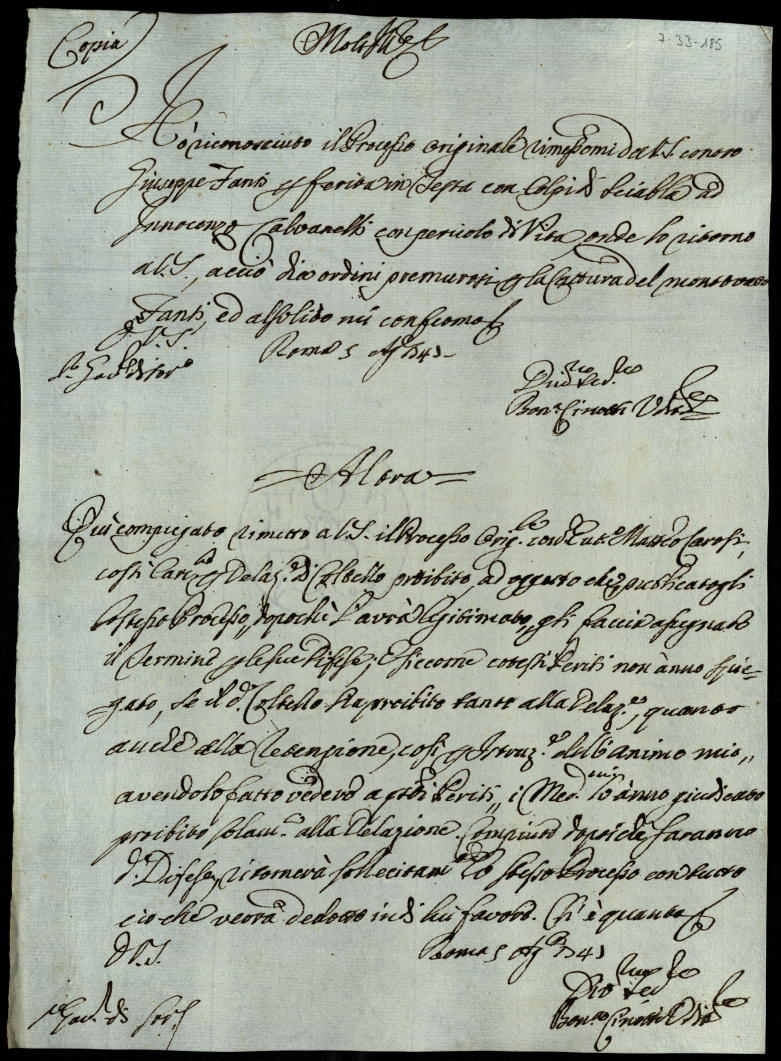 Copia
Molt' Ill.re
7-33-185
Hò riconosciuto il Processo originale rimessomi da V.S. contro
Giuseppe Fanti p ferita in Testa con Colpi di Sciabla ad
Innocenzo Calvanelli con pericolo di Vita, onde lo ritorno
a V.S., acciò dia ordini premurosi p la Cattura del mentovato
Fanti, ed al solito mi confermo
D. V.S.
Roma 5 Ag. 1741
S.r Gov.re di
Bon. Cinotti Udit.re
= Altra =
Quì compiegato rimetto a V.S. il Processo Orig.le contro Matteo Carosi,
costì Carc.to p Delaz.e di Coltello proibito, ad oggetto che publicatogli
lo stesso Processo, dopochè l'avrà legitimato, gli faccia assegnare
il Termine p le sue Difese; E siccome cotesti Periti non ànno spie-
gato, se il d.o Coltello sia proibito tanto alla Delaz.e, quanto
anche alla Retenzione, così p Istruz.e dell'animo mio,
avendolo fatto vedere a q.sti Periti, i Med.mi lo ànno giudicato
proibito solam.e alla Delazione. Compiute dopoi che saranno
d.e Difese, ritornerà sollecitam.e lo stesso Processo con tutto
ciò che verrà dedotto in di lui favore. Ch'è quanto
D V.S.
Roma 5 Ag. 1741
Gov.re di
Bon. Cinotti Udit.re